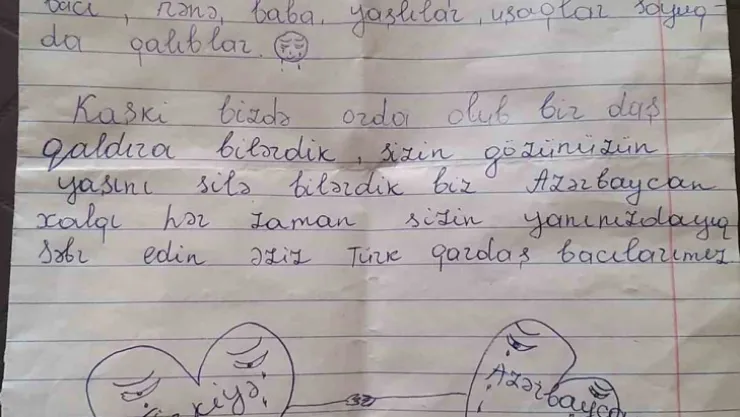 bacı, nənə, baba, yaşlılar, uşaqlar soyuq-
da qalıblar.
Kaşki bizdə orda olub bir daş
qaldıra bilərdik, sizin gözünüzün
yaşını silə bilərdik biz Azərbaycan
xalqı hər zaman sizin yanınızdayıq
Səbr edin əziz Türk qardaş bacılarımız
Azərbaycan